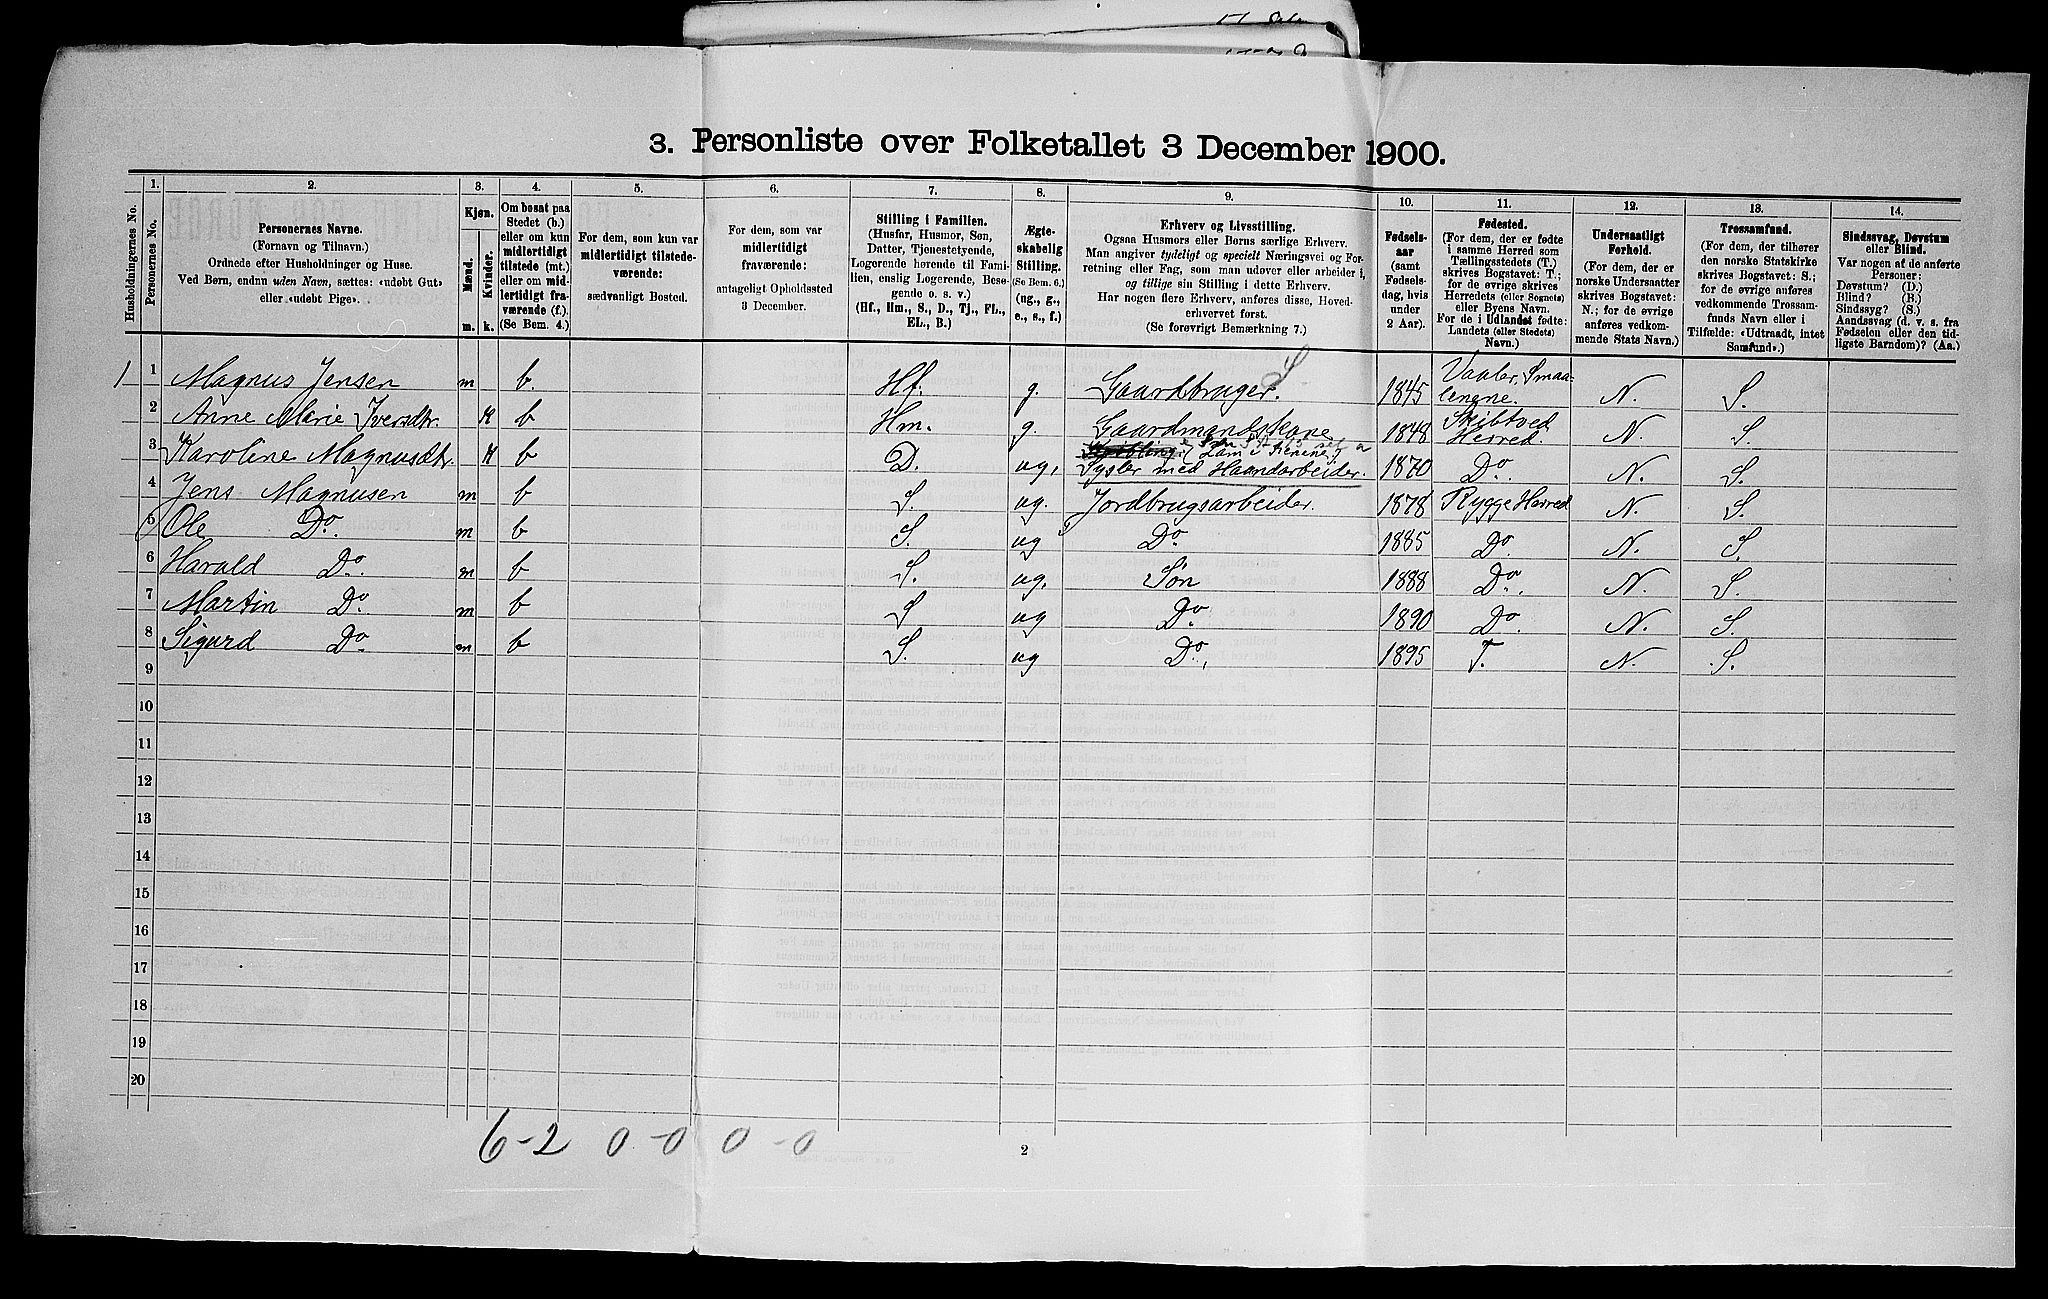 3. Personliste over Folketallet 3 December 1900.
Husholdningernes No.
1.
Personernes No.
2.
Personernes Navne.
(Fornavn og Tilnavn.)
Ordnede efter Husholdninger og Huse.
Ved Børn, endnu uden Navn, sættes: «udøbt Gut»
eller «udøbt Pige».
3.
Kjøn.
Mænd.
Kvinder.
m.
k.
4.
Om bosat paa
Stedet (b.)
eller om kun
midlertidigt
tilstede (mt.)
eller om mid-
lertidigt fra-
værende (f.).
(Se Bem. 4.)
5.
For dem, som kun var
midlertidigt tilstede-
værende:
sædvanligt Bosted.
6.
For dem, som var
midlertidigt
fraværende:
antageligt Opholdssted
3 December.
7.
Stilling i Familien.
(Husfar, Husmor, Søn,
Datter, Tjenestetyende,
Logerende hørende til Fami-
lien, enslig Logerende, Besø-
gende o. s. v.)
(Hf., Hm., S., D., Tj., FL.,
EL., B.)
8.
Ægte-
skabelig
Stilling.
(Se Bem. 6.)
(ug., g.,
e., s., f.)
9.
Erhverv og Livsstilling.
Ogsaa Husmors eller Børns særlige Erhverv.
Man angiver tydeligt og specielt Næringsvei og For-
retning eller Fag, som man udøver eller arbeider i,
og tillige sin Stilling i dette Erhverv.
Har nogen flere Erhverv, anføres disse, Hoved-
erhvervet først.
(Se forøvrigt Bemærkning 7.)
10.
Fødsels-
aar
(samt
Fødsels-
dag, hvis
under
2 Aar).
11.
Fødested.
(For dem, der er fødte
i samme Herred som
Tællingsstedets (T.)
skrives Bogstavet: T.;
for de øvrige skrives
Herredets (eller Sognets)
eller Byens Navn.
For de i Udlandet fødte:
Landets (eller Stedets)
Navn.)
12.
Undersaatligt
Forhold.
(For dem, der er
norske Undersaatter
skrives Bogstavet:
N.; for de øvrige
anføres vedkom-
mende Stats Navn.)
13.
Trossamfund.
(For dem, der tilhører
den norske Statskirke
skrives Bogstavet: S.;
for de øvrige anføres
vedkommende Trossam-
funds Navn eller i
Tilfælde: «Udtraadt, intet
Samfund».)
14.
Sindssvag, Døvstum
eller Blind.
Var nogen af de anførte
Personer:
Døvstum? (D.)
Blind? (B.)
Sindssyg? (S.)
Aandssvag (d. v. s. fra
Fødselen eller den tid-
ligste Barndom)? (Aa.)
1 1 Magnus Jensen m b. Hf. g. Gaardbruger. S 1845 Vaaler, Smaa-
lenene. N. S.
2 Anne Marie Iversdtr. K b Hm. g. Gaardmandskone 1848 Skibtved
Herred. N. S.
3 Karoline Magnusdtr. K b D. ug. Sysler med Haandarbeider. 1870 Do. N. S.
4 Jens Magnusen m b S. ug. Jordbrugsarbeider. 1878 Rygge Herred N. S.
5 Ole Do. m b S. ug Do 1885 Do. N. S.
6 Harald Do. m b S. ug. Søn 1888 Do. N. S.
7 Martin Do. m b S ug Do. 1890 Do. N. S.
8 Sigurd Do m b S. ug Do. 1895 T. N. S.
9
10
11
12
13
14
15
16
17
18
19
20
6-2 0-0 0-0
2